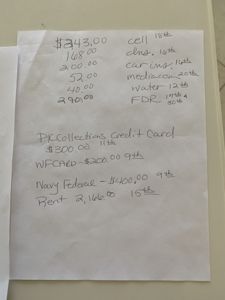 $243.00 cell 18th
168.00 chas. 16th
200.00 car ins. 16th
52.00 mediacom 20th
40.00 water 12th
290.00 FDR 17th &
30th
PK Collections Credit Card
$300.00 11th
WFCARD - $200.00 9th
Navy Federal - $400.00 9th
Rent 2,166.00 15th